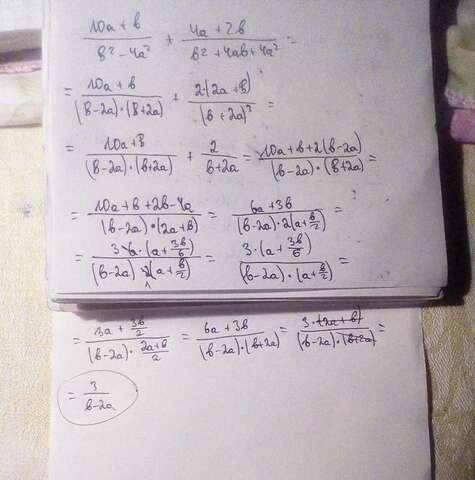 (10a + b)/(b² - 4a²) + (4a + 2b)/(b² + 4ab + 4a²) =
= (10a + b)/((b-2a)·(b+2a)) + (2·(2a + b))/((b + 2a)²) =
= (10a+b)/((b-2a)·(b+2a)) + 2/(b+2a) = (10a+b+2(b-2a))/((b-2a)·(b+2a)) =
= (10a + b + 2b - 4a)/((b-2a)·(2a+b)) = (6a + 3b)/((b-2a)·2(a+b/2)) =
= (3 6·(a+3b/6))/((b-2a)·2(a+b/2)) = (3·(a+3b/6))/((b-2a)·(a+b/2)) =
= (3a + 3b/2)/((b-2a)·(2a+b)/2) = (6a + 3b)/((b-2a)·(b+2a)) = (3·(2a+b))/((b-2a)·(b+2a)) =
= 3/(b-2a)